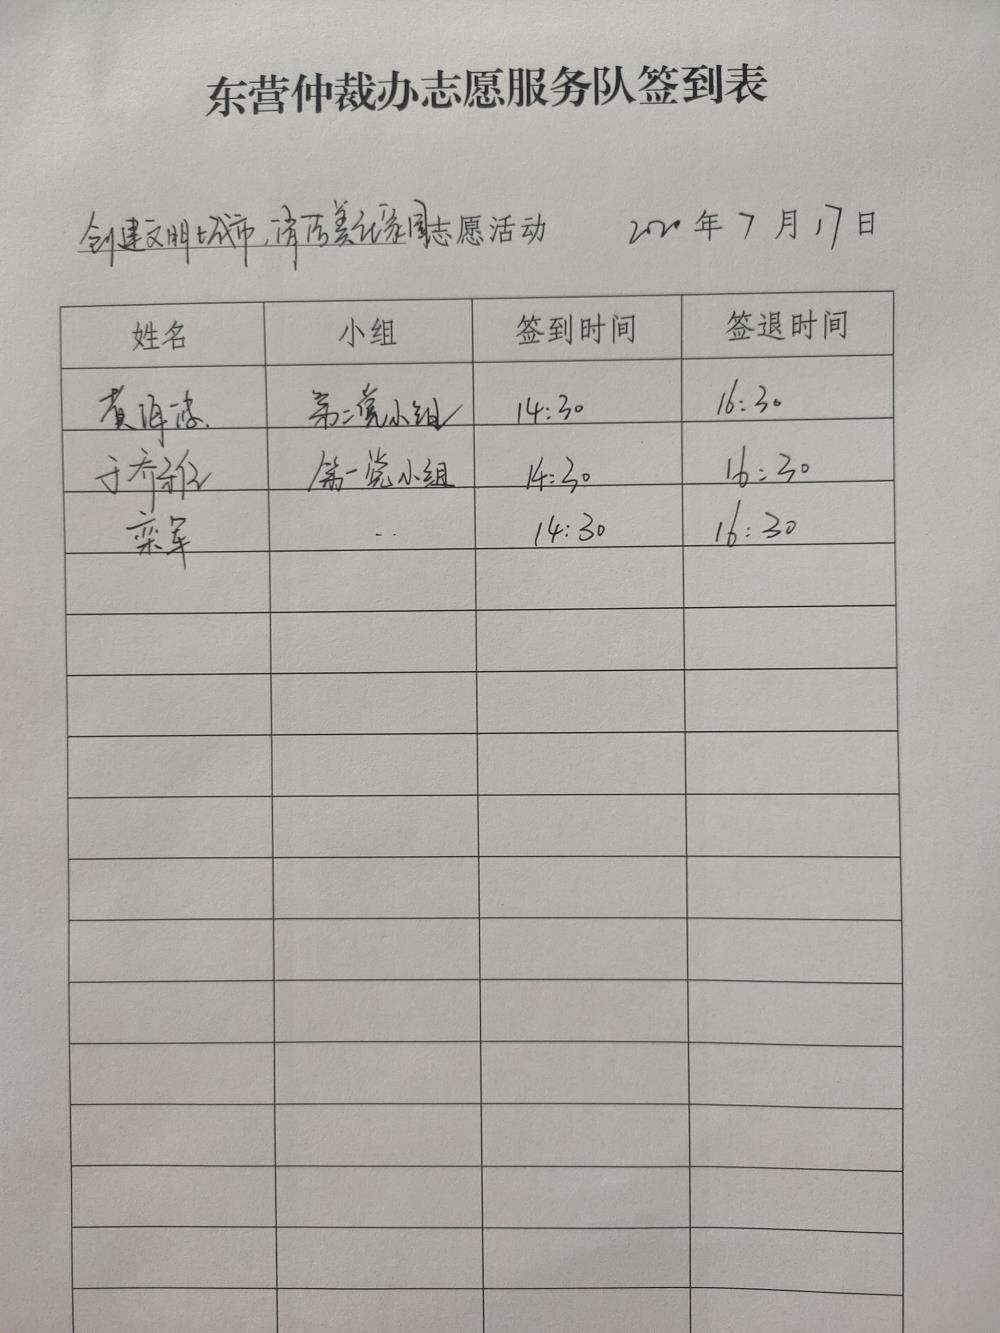 东营仲裁办志愿服务队签到表
创建文明城市,清洁美化家园志愿活动 2020年7月17日
姓名 小组 签到时间 签退时间
黄海波 第二党小组 14:30 16:30
于乔 第一党小组 14:30 16:30
栾军 .. 14:30 16:30